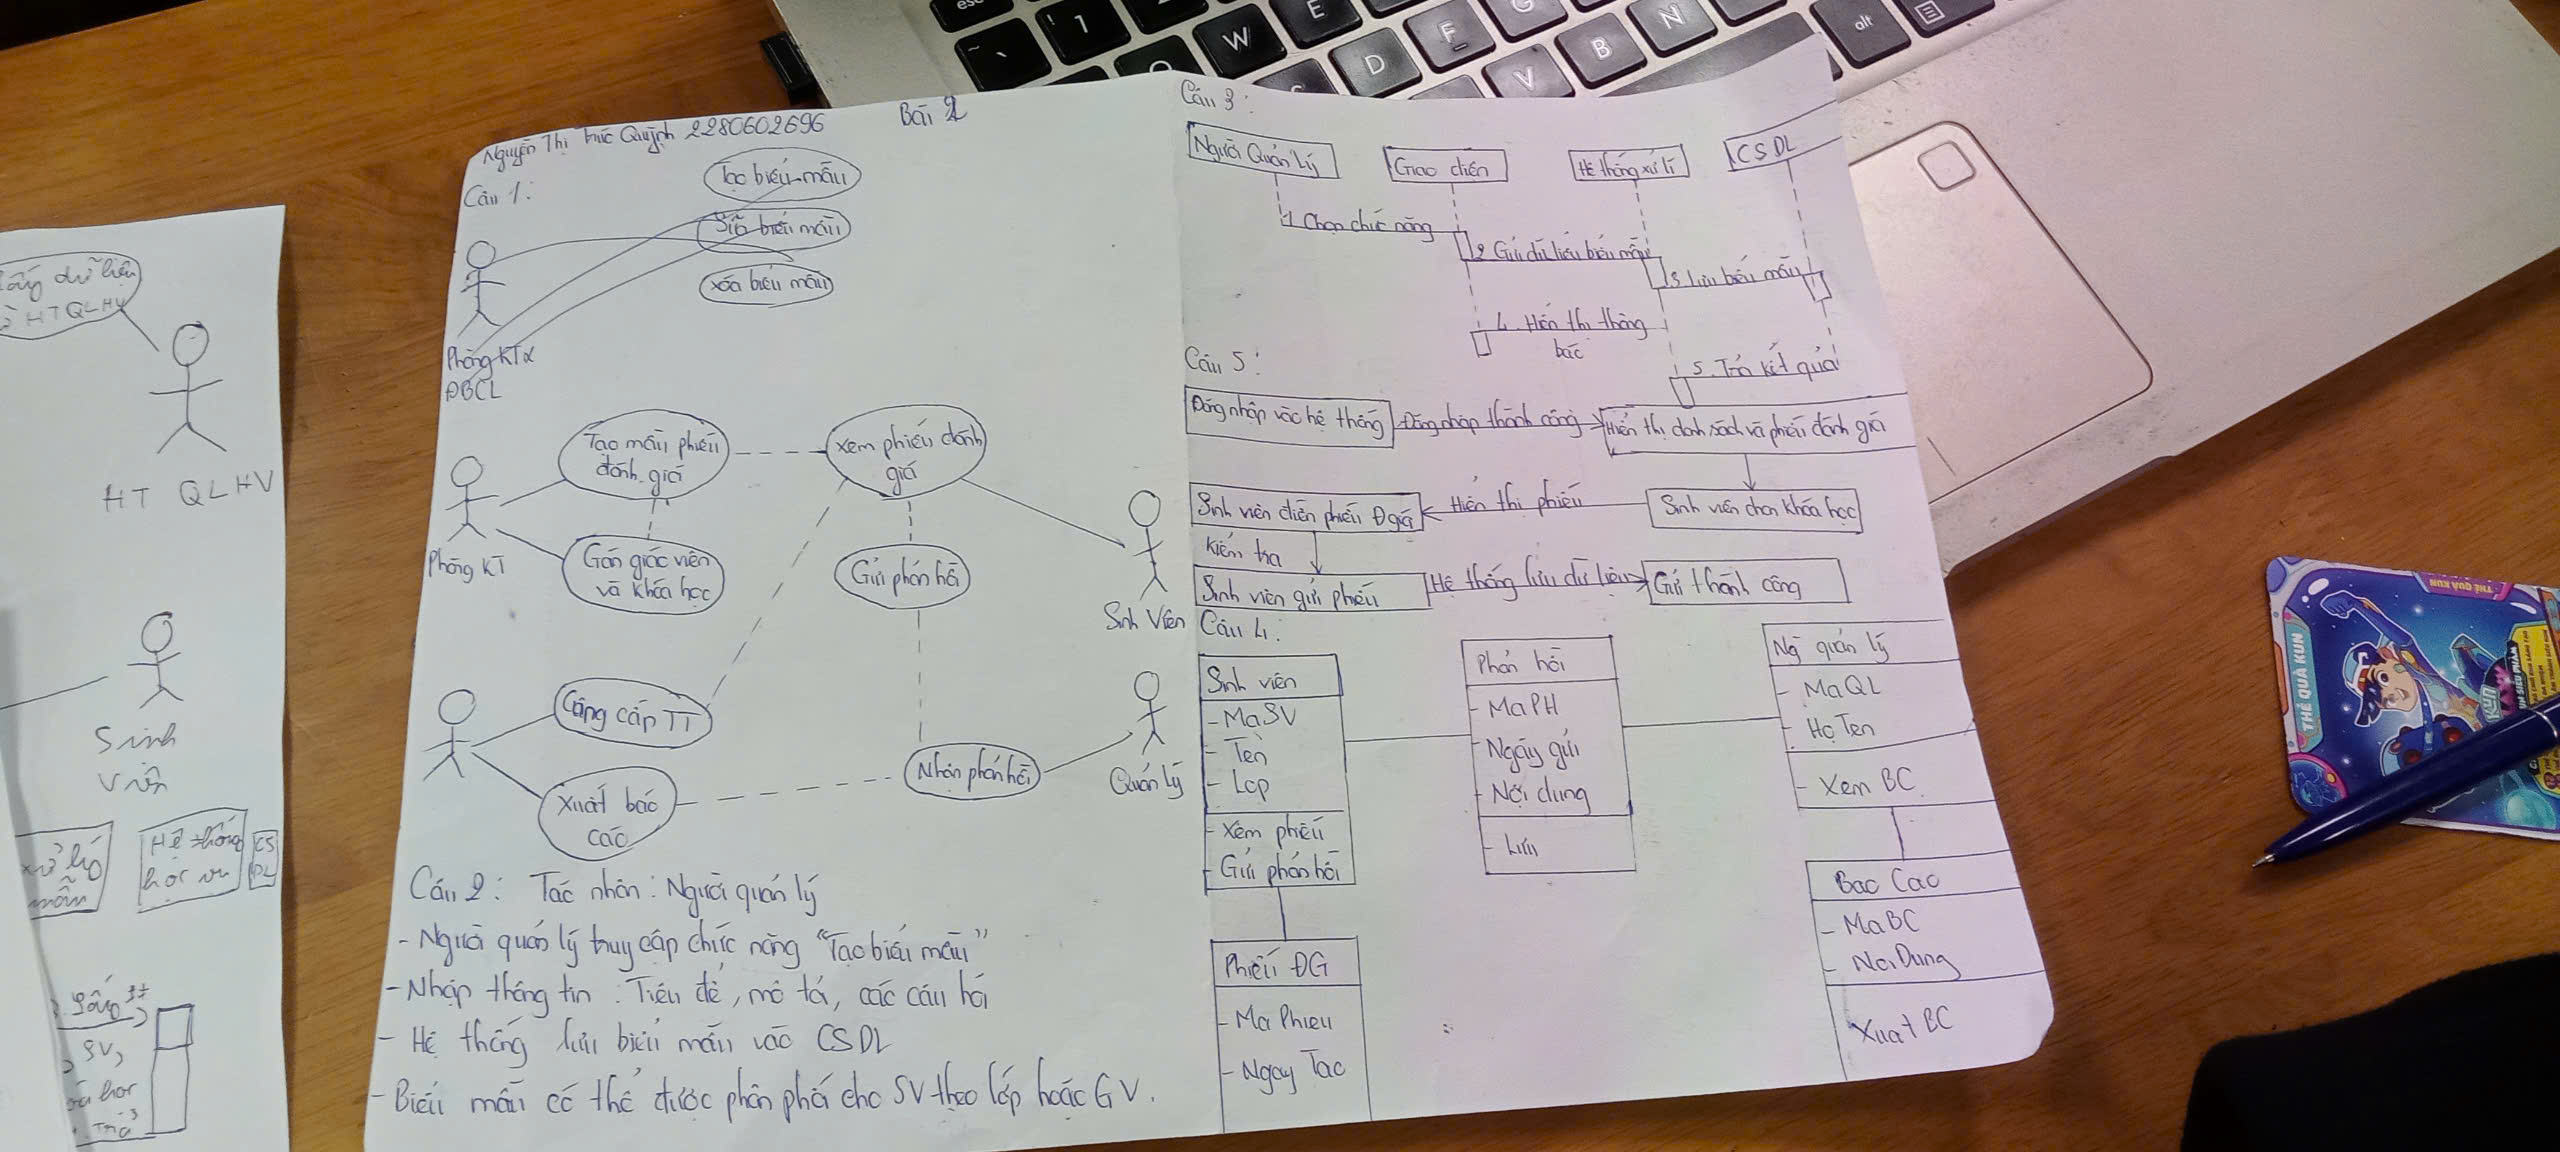 Nguyễn Thị Trúc Quỳnh 2280602696
Bài 2
Câu 1:
Tạo biểu mẫu
Sửa biểu mẫu
xóa biểu mẫu
Phòng KT&
ĐBCL
Tạo mẫu phiếu
đánh giá
xem phiếu đánh
giá
Phòng KT
Gán giác viên
và khóa học
Gửi phản hồi
Sinh Viên
Cung cấp TT
Nhận phản hồi
Quản lý
Xuất báo
cáo
Câu 2: Tác nhân: Người quản lý
- Người quản lý truy cập chức năng "Tạo biểu mẫu"
- Nhập thông tin: Tiêu đề, mô tả, các câu hỏi
- Hệ thống lưu biểu mẫu vào CSDL
- Biểu mẫu có thể được phân phối cho SV theo lớp hoặc GV.
Câu 3:
Người Quản Lý
Giao diện
Hệ thống xử lí
CSDL
1. Chọn chức năng
2 Gửi dữ liệu biểu mẫu
3 Lưu biểu mẫu
4. Hiển thị thông
báo
5. Trả kết quả
Câu 5:
Đăng nhập vào hệ thống
Đăng nhập thành công
Hiển thị danh sách và phiếu đánh giá
Sinh viên điền phiếu Đgiá
Hiển thị phiếu
Sinh viên chọn khóa học
Kiểm tra
Sinh viên gửi phiếu
Hệ thống lưu dữ liệu
Gửi thành công
Câu 4:
Sinh viên
- MaSV
- Tên
- Lớp
- Xem phiếu
- Gửi phản hồi
Phản hồi
- MaPH
- Ngày gửi
- Nội dung
- Lưu
Ng quản lý
- MaQL
- Họ Ten
- Xem BC
Phiếu ĐG
- Ma Phieu
- Ngay Tao
Bao Cao
- MaBC
- Noi Dung
Xuat BC
lấy dữ liệu
HTQLHV
HT QLHV
Sinh
viên
xử lý
mẫu
Hệ thống
học vụ
CS
DL
SV,
esc
1
W
E
D
F
G
V
B
N
alt
THẺ QUÀ KUN
THẺ QUÀ KUN